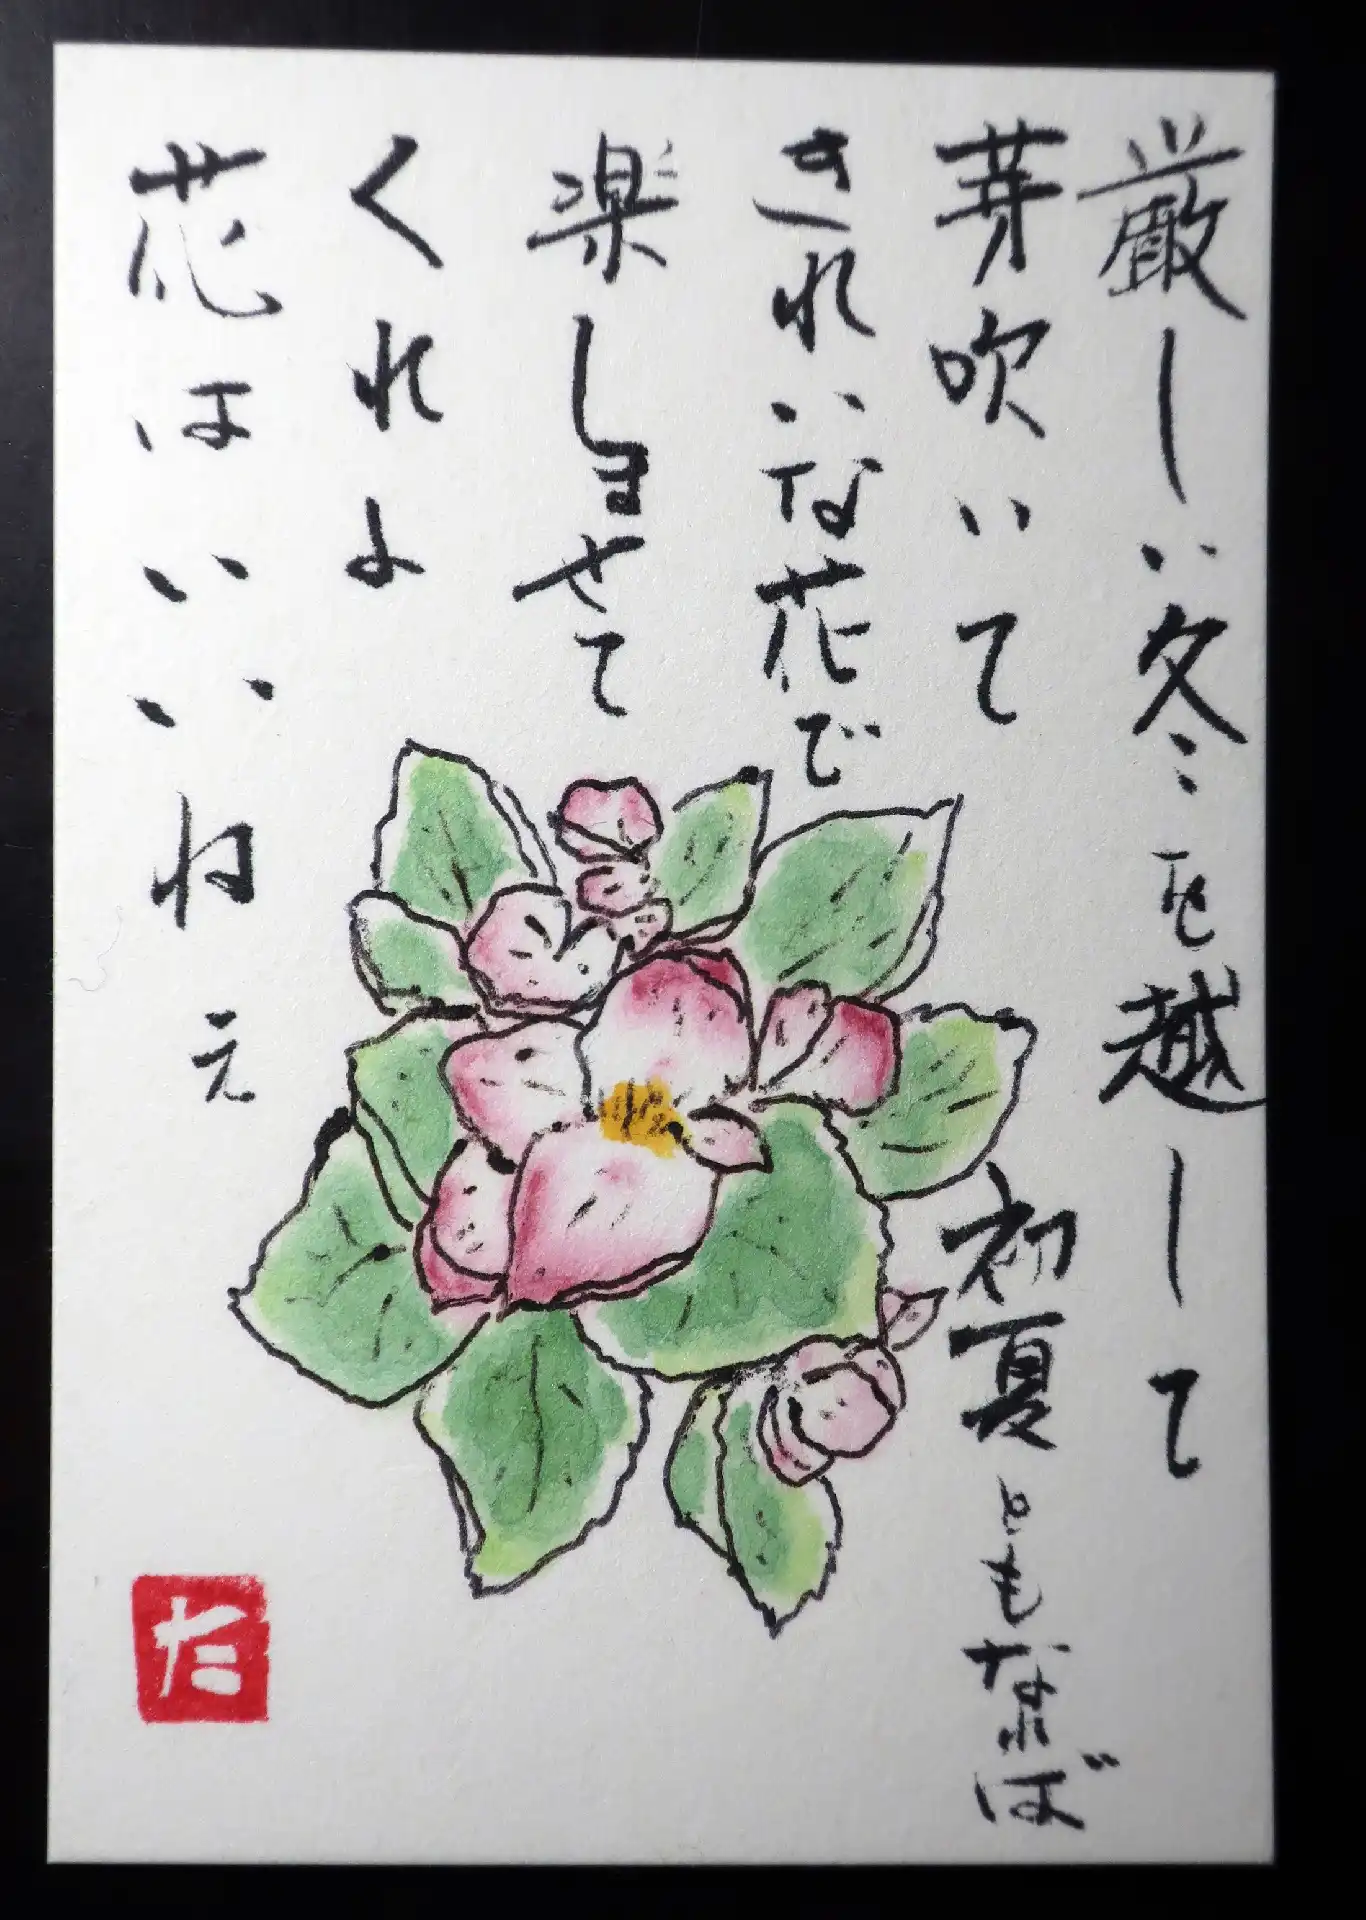 厳しい冬を越して
芽吹いて 初夏ともなれば
きれいな花で
楽しませて
くれよ
花はいいねえ
た